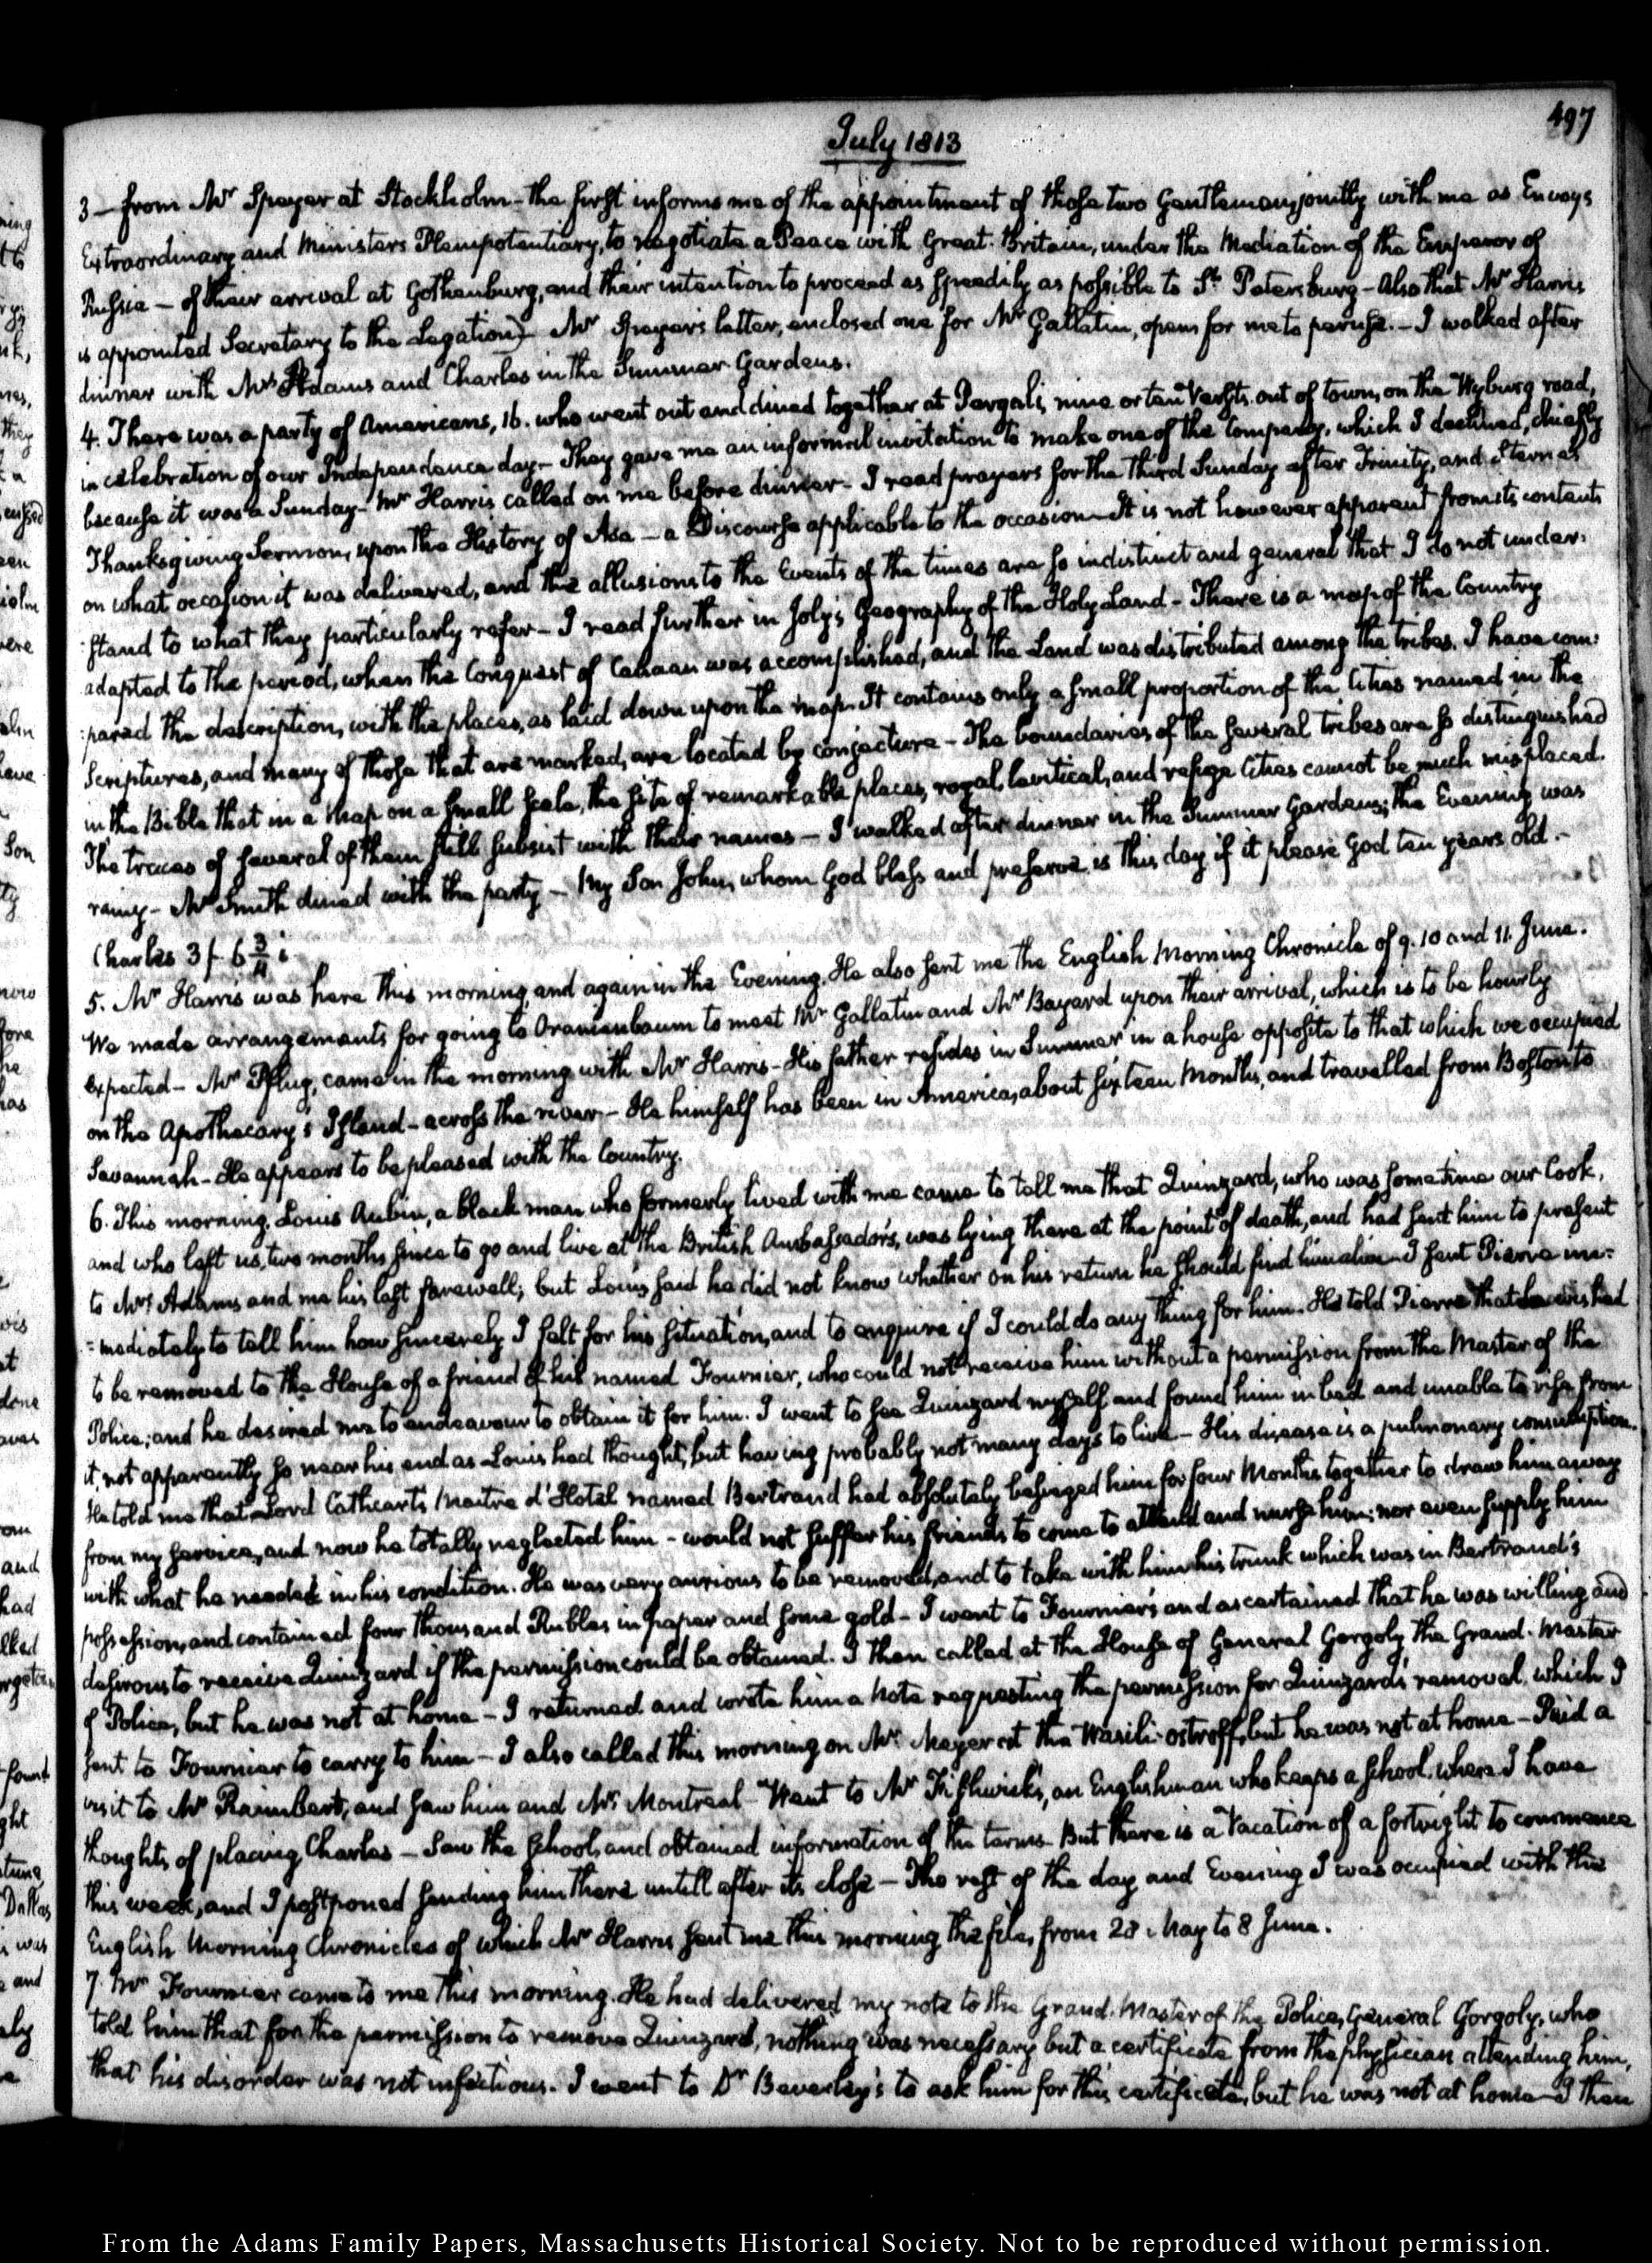 497
July 1813
3 — from Mr Speyer at Stockholm – the first informs me of the appointment of those two Gentlemen, jointly with me as Envoys
Extraordinary and Ministers Plenipotentiary, to negotiate a Peace with Great-Britain, under the Mediation of the Emperor of
Russia — of their arrival at Gothenburg, and their intention to proceed as speedily as possible to St Petersburg – Also that Mr Harris
is appointed Secretary to the Legation) – Mr Speyer's letter, enclosed one for Mr Gallatin, open for me to peruse. – I walked after
dinner with Mrs Adams and Charles in the Summer Gardens.
4. There was a party of Americans, 16. who went out and dined together at Pergali, nine or ten Versts out of town, on the Wyburg road,
in celebration of our Independence day – They gave me an informal invitation to make one of the Company, which I declined, chiefly
because it was a Sunday – Mr Harris called on me before dinner – I read prayers for the third Sunday after Trinity, and Sterne's
Thanksgiving Sermon, upon the History of Asa — a Discourse applicable to the occasion – It is not however apparent from its contents
on what occasion it was delivered, and the allusions to the Events of the times are so indistinct and general that I do not under-
-stand to what they particularly refer – I read further in Joly's Geography of the Holy Land – There is a map of the Country
adapted to the period, when the Conquest of Canaan was accomplished, and the Land was distributed among the tribes. I have com-
-pared the description, with the places, as laid down upon the map. It contains only a small proportion of the Cities named in the
Scriptures, and many of those that are marked, are located by conjecture – The boundaries of the several tribes are so distinguished
in the Bible that in a Map on a small scale, the site of remarkable places, royal, Levitical, and refuge Cities cannot be much misplaced.
The traces of several of them still subsist with their names — I walked after dinner in the Summer Gardens; the Evening was
rainy – Mr Smith dined with the party — My Son John, whom God bless and preserve, is this day if it please God ten years old. –
Charles 3 f. 6 3/4 i.
5. Mr Harris was here this morning, and again in the Evening. He also sent me the English Morning Chronicle of 9. 10 and 11. June.
We made arrangements for going to Oranienbaum to meet Mr Gallatin and Mr Bayard upon their arrival, which is to be hourly
expected – Mr Pflug, came in the morning with Mr Harris – His father resides in Summer in a house opposite to that which we occupied
on the Apothecary's Island – across the river – He himself has been in America, about sixteen Months, and travelled from Boston to
Savannah – He appears to be pleased with the Country.
6. This morning, Louis Aubin, a black man who formerly lived with me came to tell me that Quinzard, who was sometime our Cook,
and who left us, two months since to go and live at the British Ambassador's, was lying there at the point of death, and had sent him to present
to Mrs Adams and me his last farewell; but Louis said he did not know whether on his return he should find him alive – I sent Pierre im-
=mediately to tell him how sincerely I felt for his situation, and to enquire if I could do any thing for him. He told Pierre that he wished
to be removed to the House of a friend of his named Fournier, who could not receive him without a permission from the Master of the
Police; and he desired me to endeavour to obtain it for him. I went to see Quinzard myself and found him in bed and unable to rise from
it, not apparently so near his end as Louis had thought, but having probably not many days to live – His disease is a pulmonary consumption.
He told me that Lord Cathcart's Maitre d'Hotel named Bertrand had absolutely besieged him for four Months together to draw him away
from my service, and now he totally neglected him – would not suffer his friends to come to attend and nurse him; nor even supply him
with what he needed in his condition. He was very anxious to be removed, and to take with him his trunk which was in Bertrand's
possession, and contained four thousand Rubles in paper and some gold – I went to Fournier's and ascertained that he was willing and
desirous to receive Quinzard if the permission could be obtained. I then called at the House of General Gorgoly the Grand-Master
of Police, but he was not at home – I returned and wrote him a Note requesting the permission for Quinzard's removal, which I
sent to Fournier to carry to him – I also called this morning on Mr Meyer at the Wasili-ostroff, but he was not at home – Paid a
visit to Mr Raimbert, and saw him and Mr Montreal – Went to Mr Fishwick's, an Englishman who keeps a school, where I have
thoughts of placing Charles – Saw the School, and obtained information of the terms – But there is a Vacation of a fortnight to commence
this week, and I postponed sending him there untill after its close – The rest of the day and Evening I was occupied with the
English Morning Chronicles of which Mr Harris sent me this morning the file, from 28 May to 8 June.
7. Mr Fournier came to me this morning. He had delivered my note to the Grand-Master of the Police, General Gorgoly, who
told him that for the permission to remove Quinzard, nothing was necessary but a certificate from the physician attending him,
that his disorder was not infectious. I went to Dr Beverley's to ask him for this certificate, but he was not at home – I then
From the Adams Family Papers, Massachusetts Historical Society. Not to be reproduced without permission.